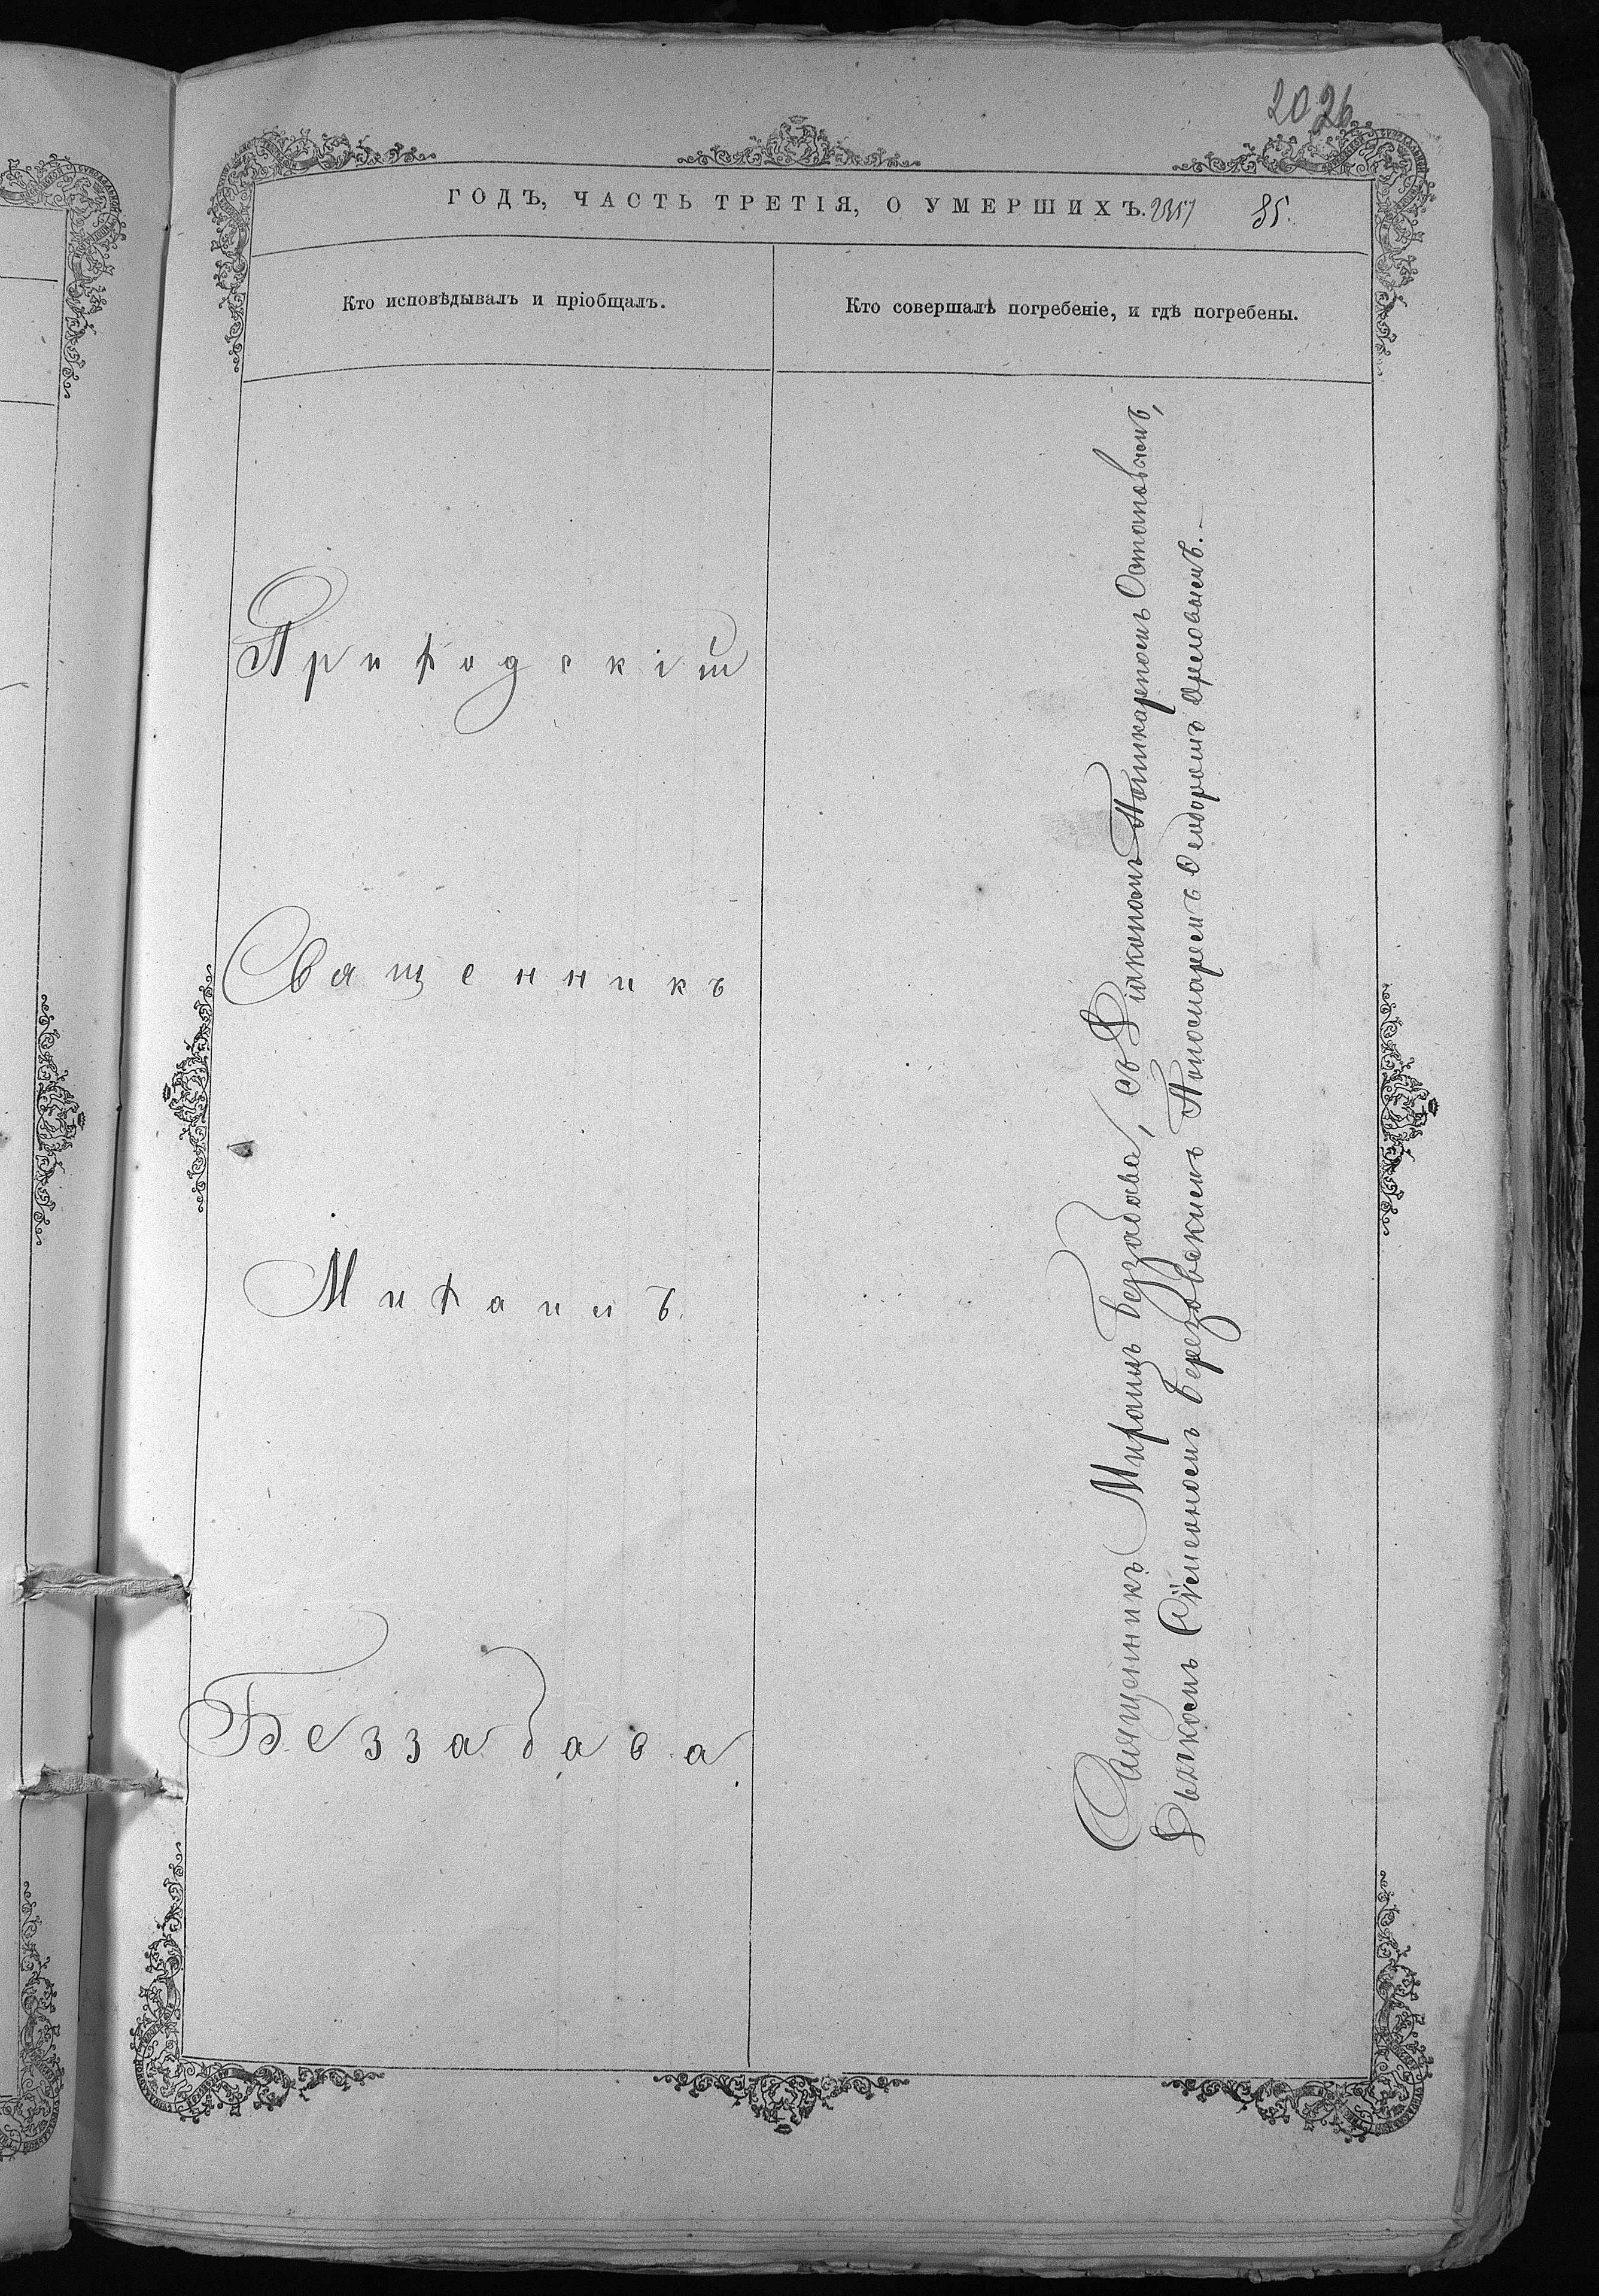 2026
ГОДЪ, ЧАСТЬ ТРЕТІЯ, О УМЕРШИХЪ. 2357 85.
Кто исповѣдывалъ и пріобщалъ.
Кто совершалъ погребеніе, и гдѣ погребены.
Приходскій
Священникъ
Михаилъ
Беззабава
Священникъ Михаилъ Беззабава, съ Діакономъ Поликарпомъ Остаповымъ,
Дьячкомъ Сѵмеономъ Березовскимъ Пономаремъ Ѳеодоромъ Орловымъ.